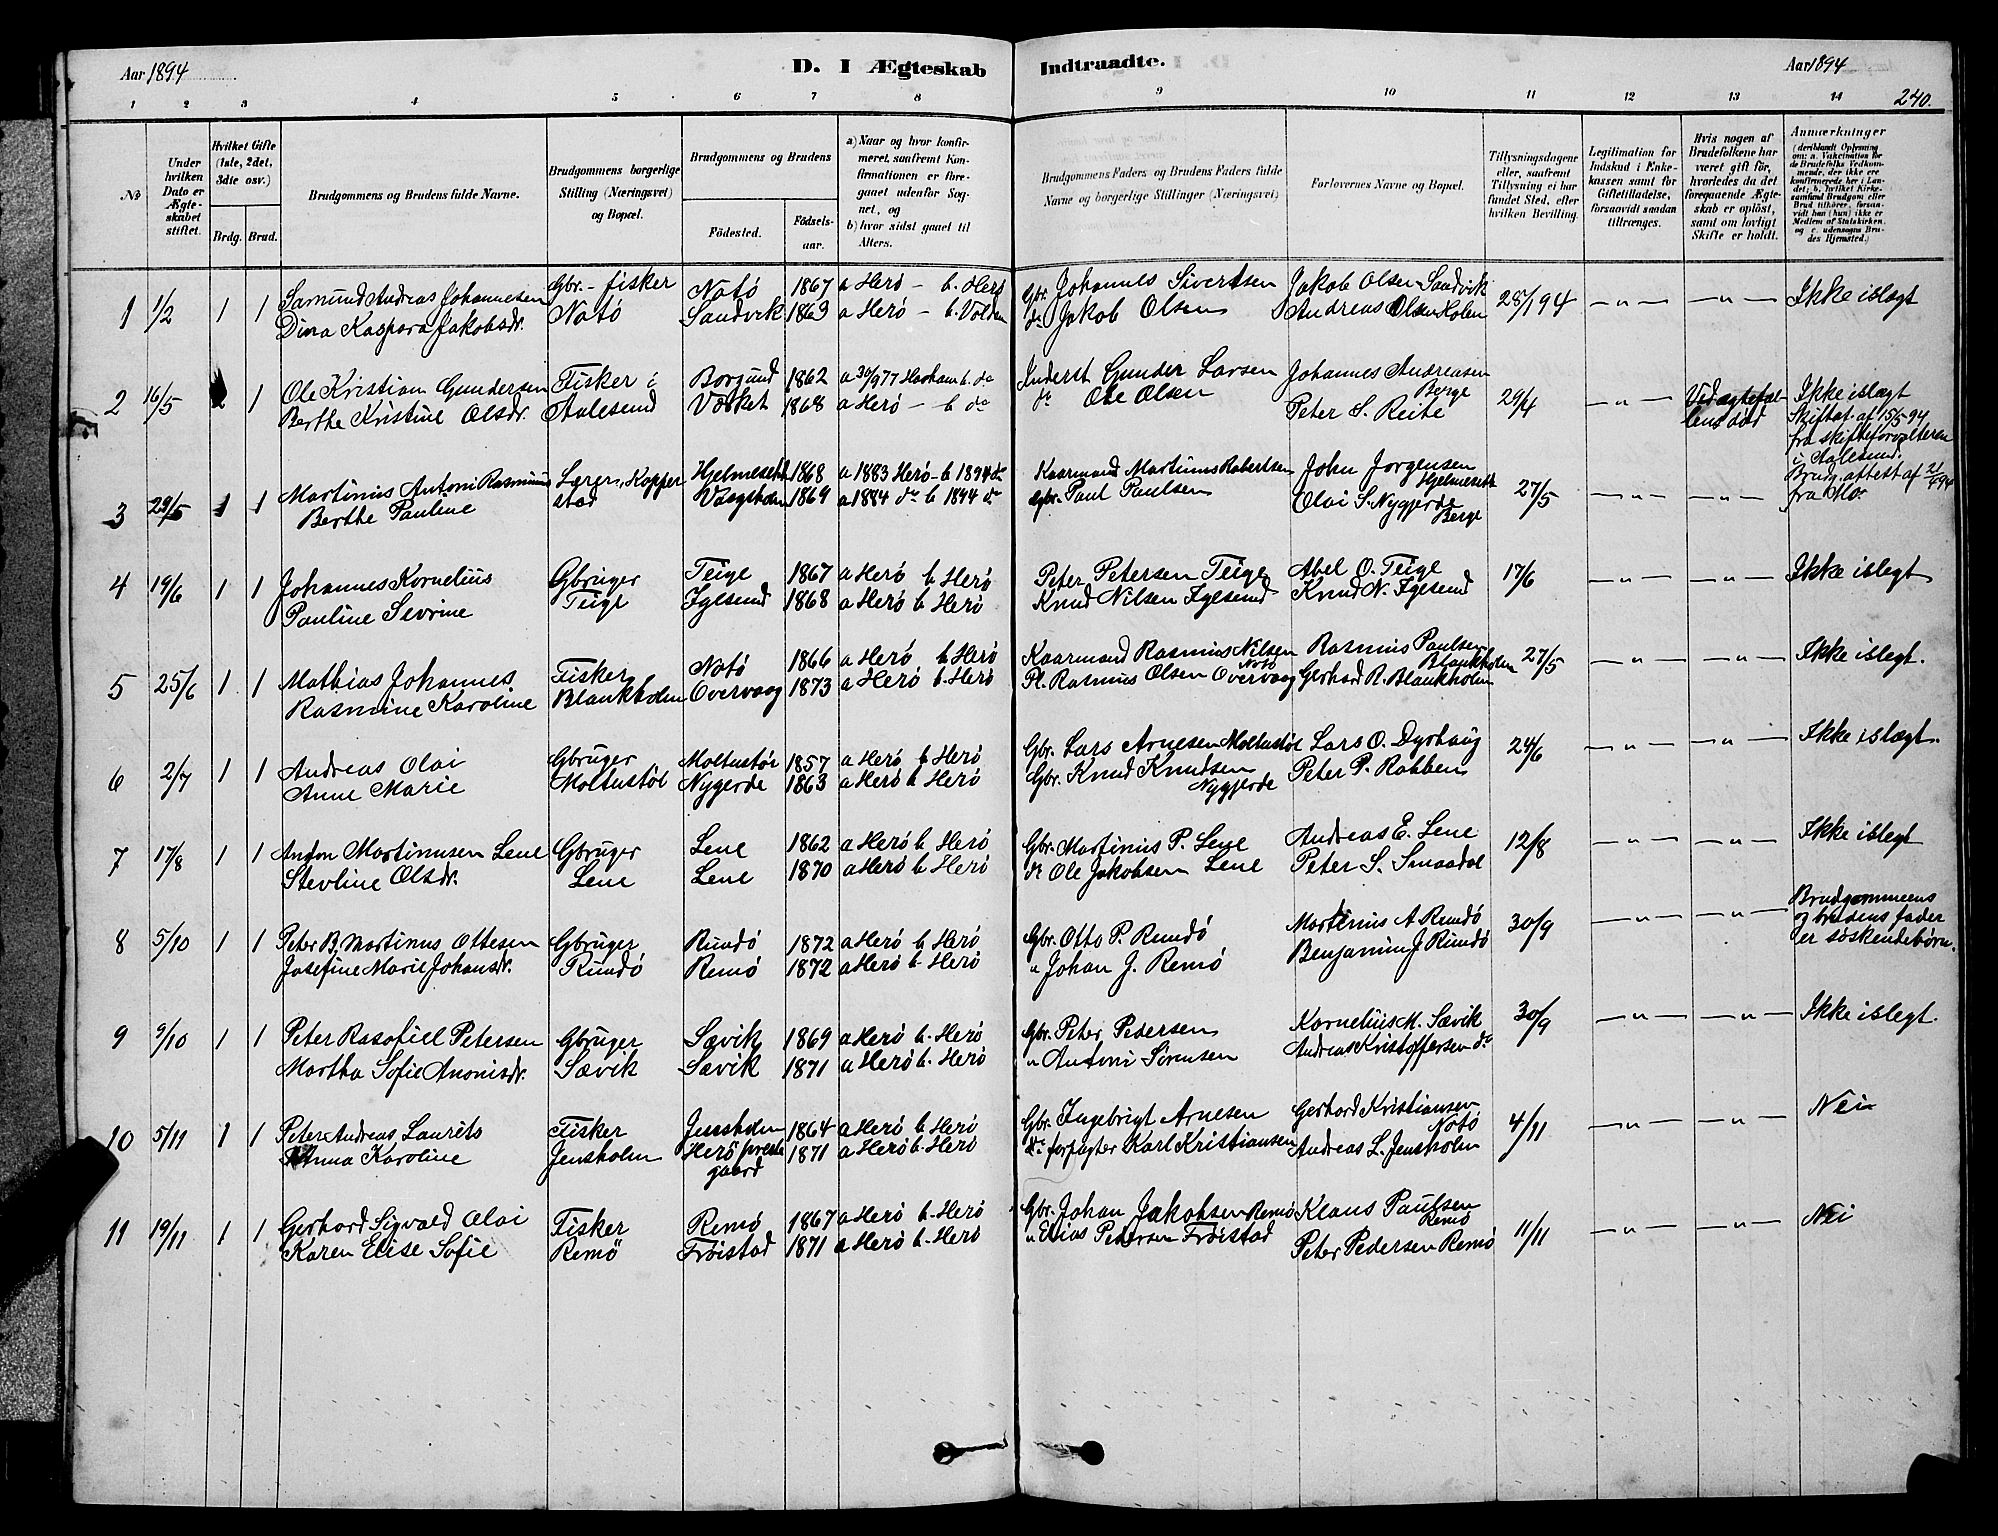 Aar 1894
D. I Ægteskab
Indtraadte.
Aar 1894
240.
1 2 3 4 5 6 7 8 9 10 11 12 13 14
No
Under hvilken Dato er Ægteskabet stiftet.
Hvilket Gifte (1ste, 2det, 3die osv.)
Brdg. Brud.
Brudgommens og Brudens fulde Navne.
Brudgommens borgerlige Stilling (Næringsvei) og Bopæl.
Brudgommens og Brudens
Födested.
Födsels-aar.
a) Naar og hvor konfirmeret, saafremt Konfirmationen er foregaaet udenfor Sognet, og
b) hvor sidst gaaet til Alters.
Brudgommens Faders og Brudens Faders fulde Navne og borgerlige Stillinger (Næringsvei)
Forlovernes Navne og Bopæl.
Tillysningsdagene eller, saafremt Tillysning ei har fundet Sted, efter hvilken Bevilling.
Legitimation for Indskud i Enkekassen samt for Giftetilladelse, forsaavidt saadan tiltrænges.
Hvis nogen af Brudefolkene har været gift för, hvorledes da det foregaaende Ægteskab er oplöst, samt om lovligt Skifte er holdt.
Anmærkninger (deriblandt Oplysning om: a. Vakcination for de Brudefolks Vedkommende, der ikke ere konfirmerede her i Landet; b. hvilket Kirkesamfund Brudgom eller Brud tilhörer, forsaavidt han (hun) ikke er Medlem af Statskirken, og c. udensogns Brudes Hjemsted.)
1 1/2 1 1 Samund Andreas Johannesen Gbr.- fisker Notö 1867 a Herö - b. Herö Gbr. Johannes Sivertsen Jakob Olsen Sandvik 28/1 94 - " - - " - Ikke islægt
Dina Kaspara Jakobsdr. Notö Sandvik 1863 a Herö - b. Volden do Jakob Olsen Andreas Olsen Holen
2 16/5 2 1 Ole Kristian Gundersen Fisker i Borgund 1862 a 30/9 77 Harham b. do Inderst Gunder Larsen Johannes Andreasen Berge 29/4 - " - Ved ægtefællens död Ikke islægt
Berthe Kristine Olsdr. Aalesund Vasket 1868 a Herö - b do do Ole Olsen Peter S. Reite
Skifteat. af 15/5 94
fra skifteforvalteren
i Aalesund.
3 29/5 1 1 Martinius Antoni Rasmus Lærer, Kopperstad Hjelmeseth 1868 a 1883 Herö - b 1894 do Kaarmand Martinus Robertsen John Jorgensen Hjelmeseth 27/5 - " - - " - Brudg. attest af 21/4 94
Berthe Pauline Vaagsholm 1869 a 1884 do b 1894 do gbr. Paul Paulsen Olai S. Nygjerde Berge
4 19/6 1 1 Johannes Kornelius Gbruger Teige 1867 a Herö b Herö Peter Petersen Teige Abel O. Teige 17/6 - " - - " - Ikke islegt
Pauline Sivrine Teige Igesund 1868 a Herö b Herö Knud Nilsen Igesund Knud N. Igesund
5 25/6 1 1 Mathias Johannes Fisker Notö 1866 a Herö b Herö Kaarmand Rasmus Nilsen Notö Rasmus Paulsen Blankholm 27/5 - " - - " - Ikke islegt.
Rasmine Karoline Blankholm Overvaag 1873 a Herö b. Herö Pl. Rasmus Olsen Overvaag Gerhard R. Blankholm
6 2/7 1 1 Andreas Olai Gbruger Moltustöl 1857 a Herö b Herö Gbr. Lars Arnesen Moltustöl Lars O. Dyrhaug 24/6 - " - - " - Ikke islægt.
Anne Marie Moltustöl Nygerde 1863 a Herö b Herö Gbr. Knud Knudsen Nygjerde Peter P. Rabben
7 17/8 1 1 Anton Martinusen Lene Gbruger Lene 1862 a Herö b Herö Gbr. Martinius P. Lene Andreas E. Lene 12/8 - " - - " - Ikke islegt
Stevline Olsdr. Lene Lene 1870 a Herö b Herö do Ole Jakobsen Lene Peter S. Smaadal
8 5/10 1 1 Peter B. Martinus Ottesen Gbruger Rundö 1872 a Herö b. Herö Gbr. Otto P. Rundö Martinius A Rundö 30/9 - " - - " - Brudgommens
Josefine Marie Johansdr. Rundö Remö 1872 a Herö b. Herö " Johan J. Remö Benjamin J Rundö og brudens fader
er söskendebörn.
9 9/10 1 1 Peter Rasofiel Petersen Gbruger Sævik 1869 a Herö b. Herö Gbr. Peter Pedersen Kornelius M. Sævik 30/9 - " - - " - Ikke islegt.
Martha Sofie Anonisdr. Sævik Sævik 1871 a Herö b. Herö " Antoni Sörensen Andreas Kristoffersen do
10 5/11 1 1 Peter Andreas Laurits Fisker Jensholm 1864 a Herö b Herö Gbr. Ingebrigt Arnesen Gerhard Kristiansen Notö 4/11 - " - - " - Nei
Anna Karoline Jensholm Herö prestegaard 1871 a Herö b. Herö do forpagter Karl Kristiansen Andreas L. Jensholm
11 19/11 1 1 Gerhard Sigvald Olai Fisker Remö 1867 a Herö b. Herö Gbr. Johan Jakobsen Remö Klaus Paulsen Remö 11/11 - " - - " - Nei
Karen Elise Sofie Remö Fröistad 1871 a Herö b. Herö " Elias Petersen Fröistad Peter Pedersen Remö